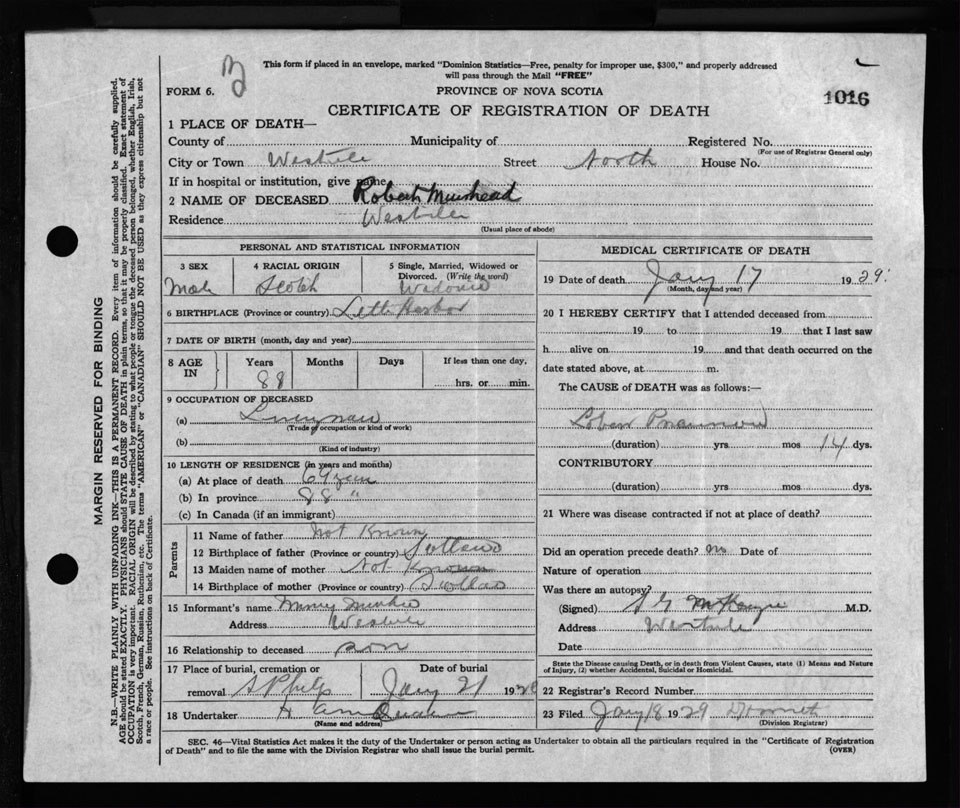 This form if placed in an envelope, marked "Dominion Statistics—Free, penalty for improper use, $300," and properly addressed
will pass through the Mail "FREE"
FORM 6.
PROVINCE OF NOVA SCOTIA
1016
CERTIFICATE OF REGISTRATION OF DEATH
1 PLACE OF DEATH—
County of Municipality of Registered No.
(For use of Registrar General only)
City or Town Westville Street North House No.
If in hospital or institution, give name
2 NAME OF DECEASED Robert Muirhead
Residence Westville
(Usual place of abode)
PERSONAL AND STATISTICAL INFORMATION
3 SEX 4 RACIAL ORIGIN 5 Single, Married, Widowed or Divorced. (Write the word)
Male Scotch
6 BIRTHPLACE (Province or country) Little Harbor
7 DATE OF BIRTH (month, day and year)
8 AGE IN Years Months Days If less than one day,
88 hrs. or min.
9 OCCUPATION OF DECEASED
(a)
(Trade or occupation or kind of work)
(b)
(Kind of industry)
10 LENGTH OF RESIDENCE (in years and months)
(a) At place of death 69 years
(b) In province 88 "
(c) In Canada (if an immigrant)
Parents
11 Name of father Not Known
12 Birthplace of father (Province or country) Scotland
13 Maiden name of mother Not Known
14 Birthplace of mother (Province or country) Scotland
15 Informant's name
Address Westville
16 Relationship to deceased son
17 Place of burial, cremation or Date of burial
removal Jany 21 192
18 Undertaker
(Name and address)
MEDICAL CERTIFICATE OF DEATH
19 Date of death Jany 17 1929
(Month, day and year)
20 I HEREBY CERTIFY that I attended deceased from
19 to 19 that I last saw
h alive on 19 and that death occurred on the
date stated above, at m.
The CAUSE of DEATH was as follows:—
Lobar Pneumonia
(duration) yrs mos 14 dys.
CONTRIBUTORY
(duration) yrs mos dys.
21 Where was disease contracted if not at place of death?
Did an operation precede death? no Date of
Nature of operation
Was there an autopsy?
(Signed) McKenzie M.D.
Address Westville
Date
State the Disease causing Death, or in death from Violent Causes, state (1) Means and Nature
of Injury, (2) whether Accidental, Suicidal or Homicidal.
22 Registrar's Record Number
23 Filed Jany 18 1929
(Division Registrar)
SEC. 46—Vital Statistics Act makes it the duty of the Undertaker or person acting as Undertaker to obtain all the particulars required in the "Certificate of Registration
of Death" and to file the same with the Division Registrar who shall issue the burial permit. (OVER)
MARGIN RESERVED FOR BINDING
N.B.—WRITE PLAINLY WITH UNFADING INK—THIS IS A PERMANENT RECORD. Every item of information should be carefully supplied.
AGE should be stated EXACTLY. PHYSICIANS should STATE CAUSE OF DEATH in plain terms, so that it may be properly classified. Exact statement of
OCCUPATION is very important. RACIAL ORIGIN will be described by stating to what people or tongue the deceased person belonged, whether English, Irish,
Scotch, French, German, Russian, Ruthenian, etc. The terms "AMERICAN" or "CANADIAN" SHOULD NOT BE USED as they express citizenship but not
a race or people. See instructions on back of Certificate.